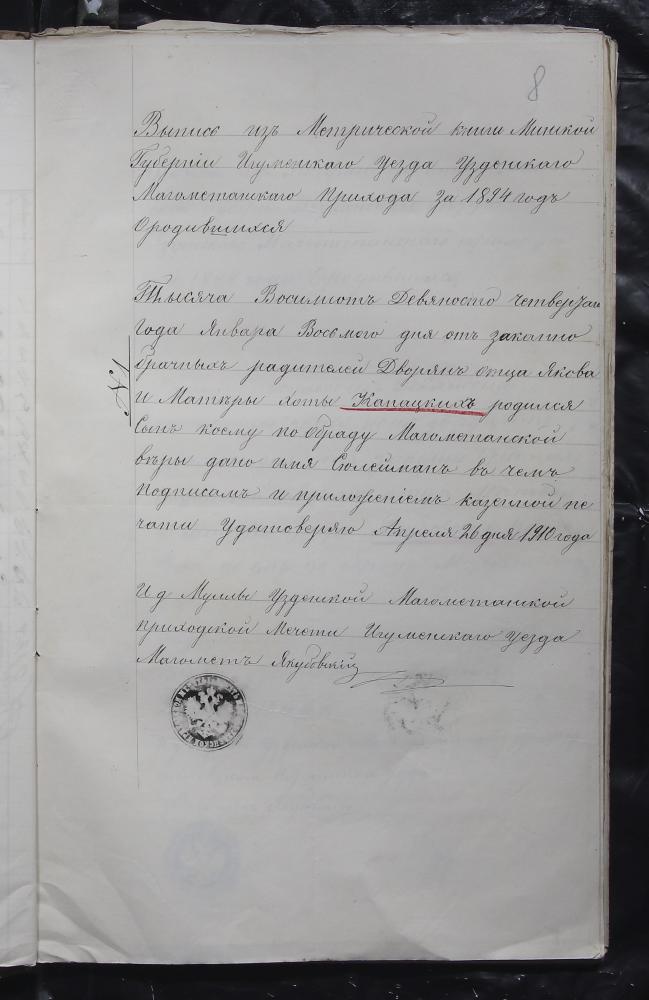 8
Выпись изъ Метрической книги Минкой
Губерніи Игуменкаго уезда Узденкаго
Магометанкаго Прихода за 1894 годъ
Ородившихся
Тысяча Восимютъ Девяносто четверзаи
Года Января Восьмого дня отъ законно
брачныхъ радителей Дворянъ отца Якова
№1
И Матѣры Хоты Капацкихъ родился
Сынъ коему по обраду Магометанской
вѣры дано имя Сюлейманъ въ чемъ
Подписамъ и приложеніемъ казенной пе
чати Удостоверяю Апреля 26 дня 1910 года
И д Муллы Узденкой Магометанкой
приходкой Мечети Игуменкаго уезда
Магометъ Якубовскій